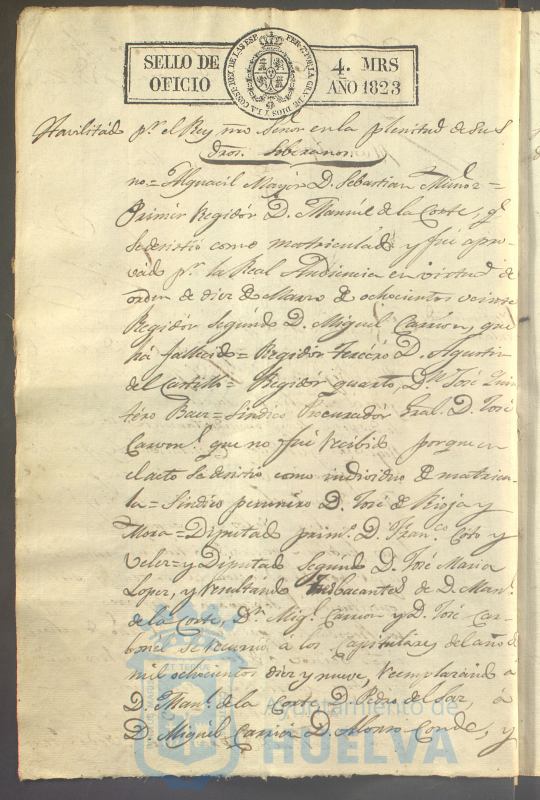 SELLO DE OFICIO
4. MRS AÑO 1823
Havilitado pr. el Rey nro. Señor en la plenitud de sus
dros. Soberanos.
no= Alguacil Mayor D. Sebastian Muñoz=
Primer Regidor D. Manuel de la Corte, q.
se desistio como matriculado y fué apro-
vado pr. la Real Audiencia en virtud de
orden de diez de Marzo de ochocientos veinte
Regidor segundo D. Miguel Carrion, que
há fallecido= Regidor Tercero D. Agustin
del Castillo= Regidor quarto, Dn. José Quin
tero Baez= Sindico Procurador Gral. D. José
Carvonl. que no fué recibido porque en
el acto se desistio como individuo de matricu-
la= Sindico personero D. José de Rioja y
Mora= Diputado prim. D. Franco. Coto y
Velez= y Diputado Segundo D. José Maria
Lopez, y resultando las bacantes de D. Manl.
de la Corte, Dn. Migl. Carrion y D. José Car-
bonel se recurrio a los Capitulares del año de
mil ochocientos diez y nueve, reemplazando a
D. Manl. de la Corte D. Pedro del Saz, á
D. Miguel Carrion D. Alonso Conde, y
Ayuntamiento de
HUELVA